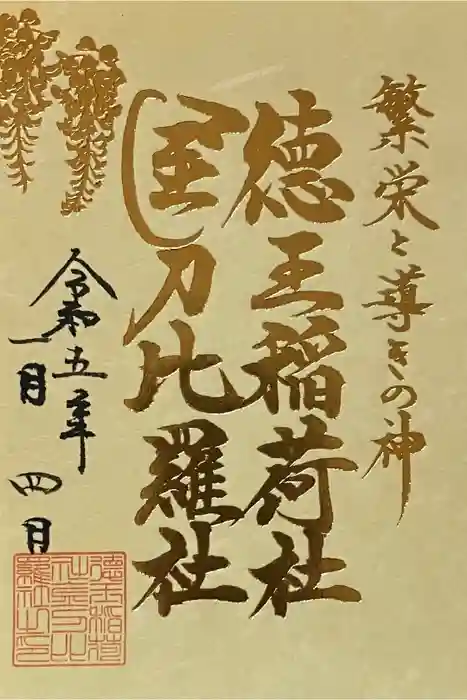 繁栄と導きの神
徳王稲荷社
金刀比羅社
令和五年
一月四日
徳王稲荷
社金刀比
羅社之印